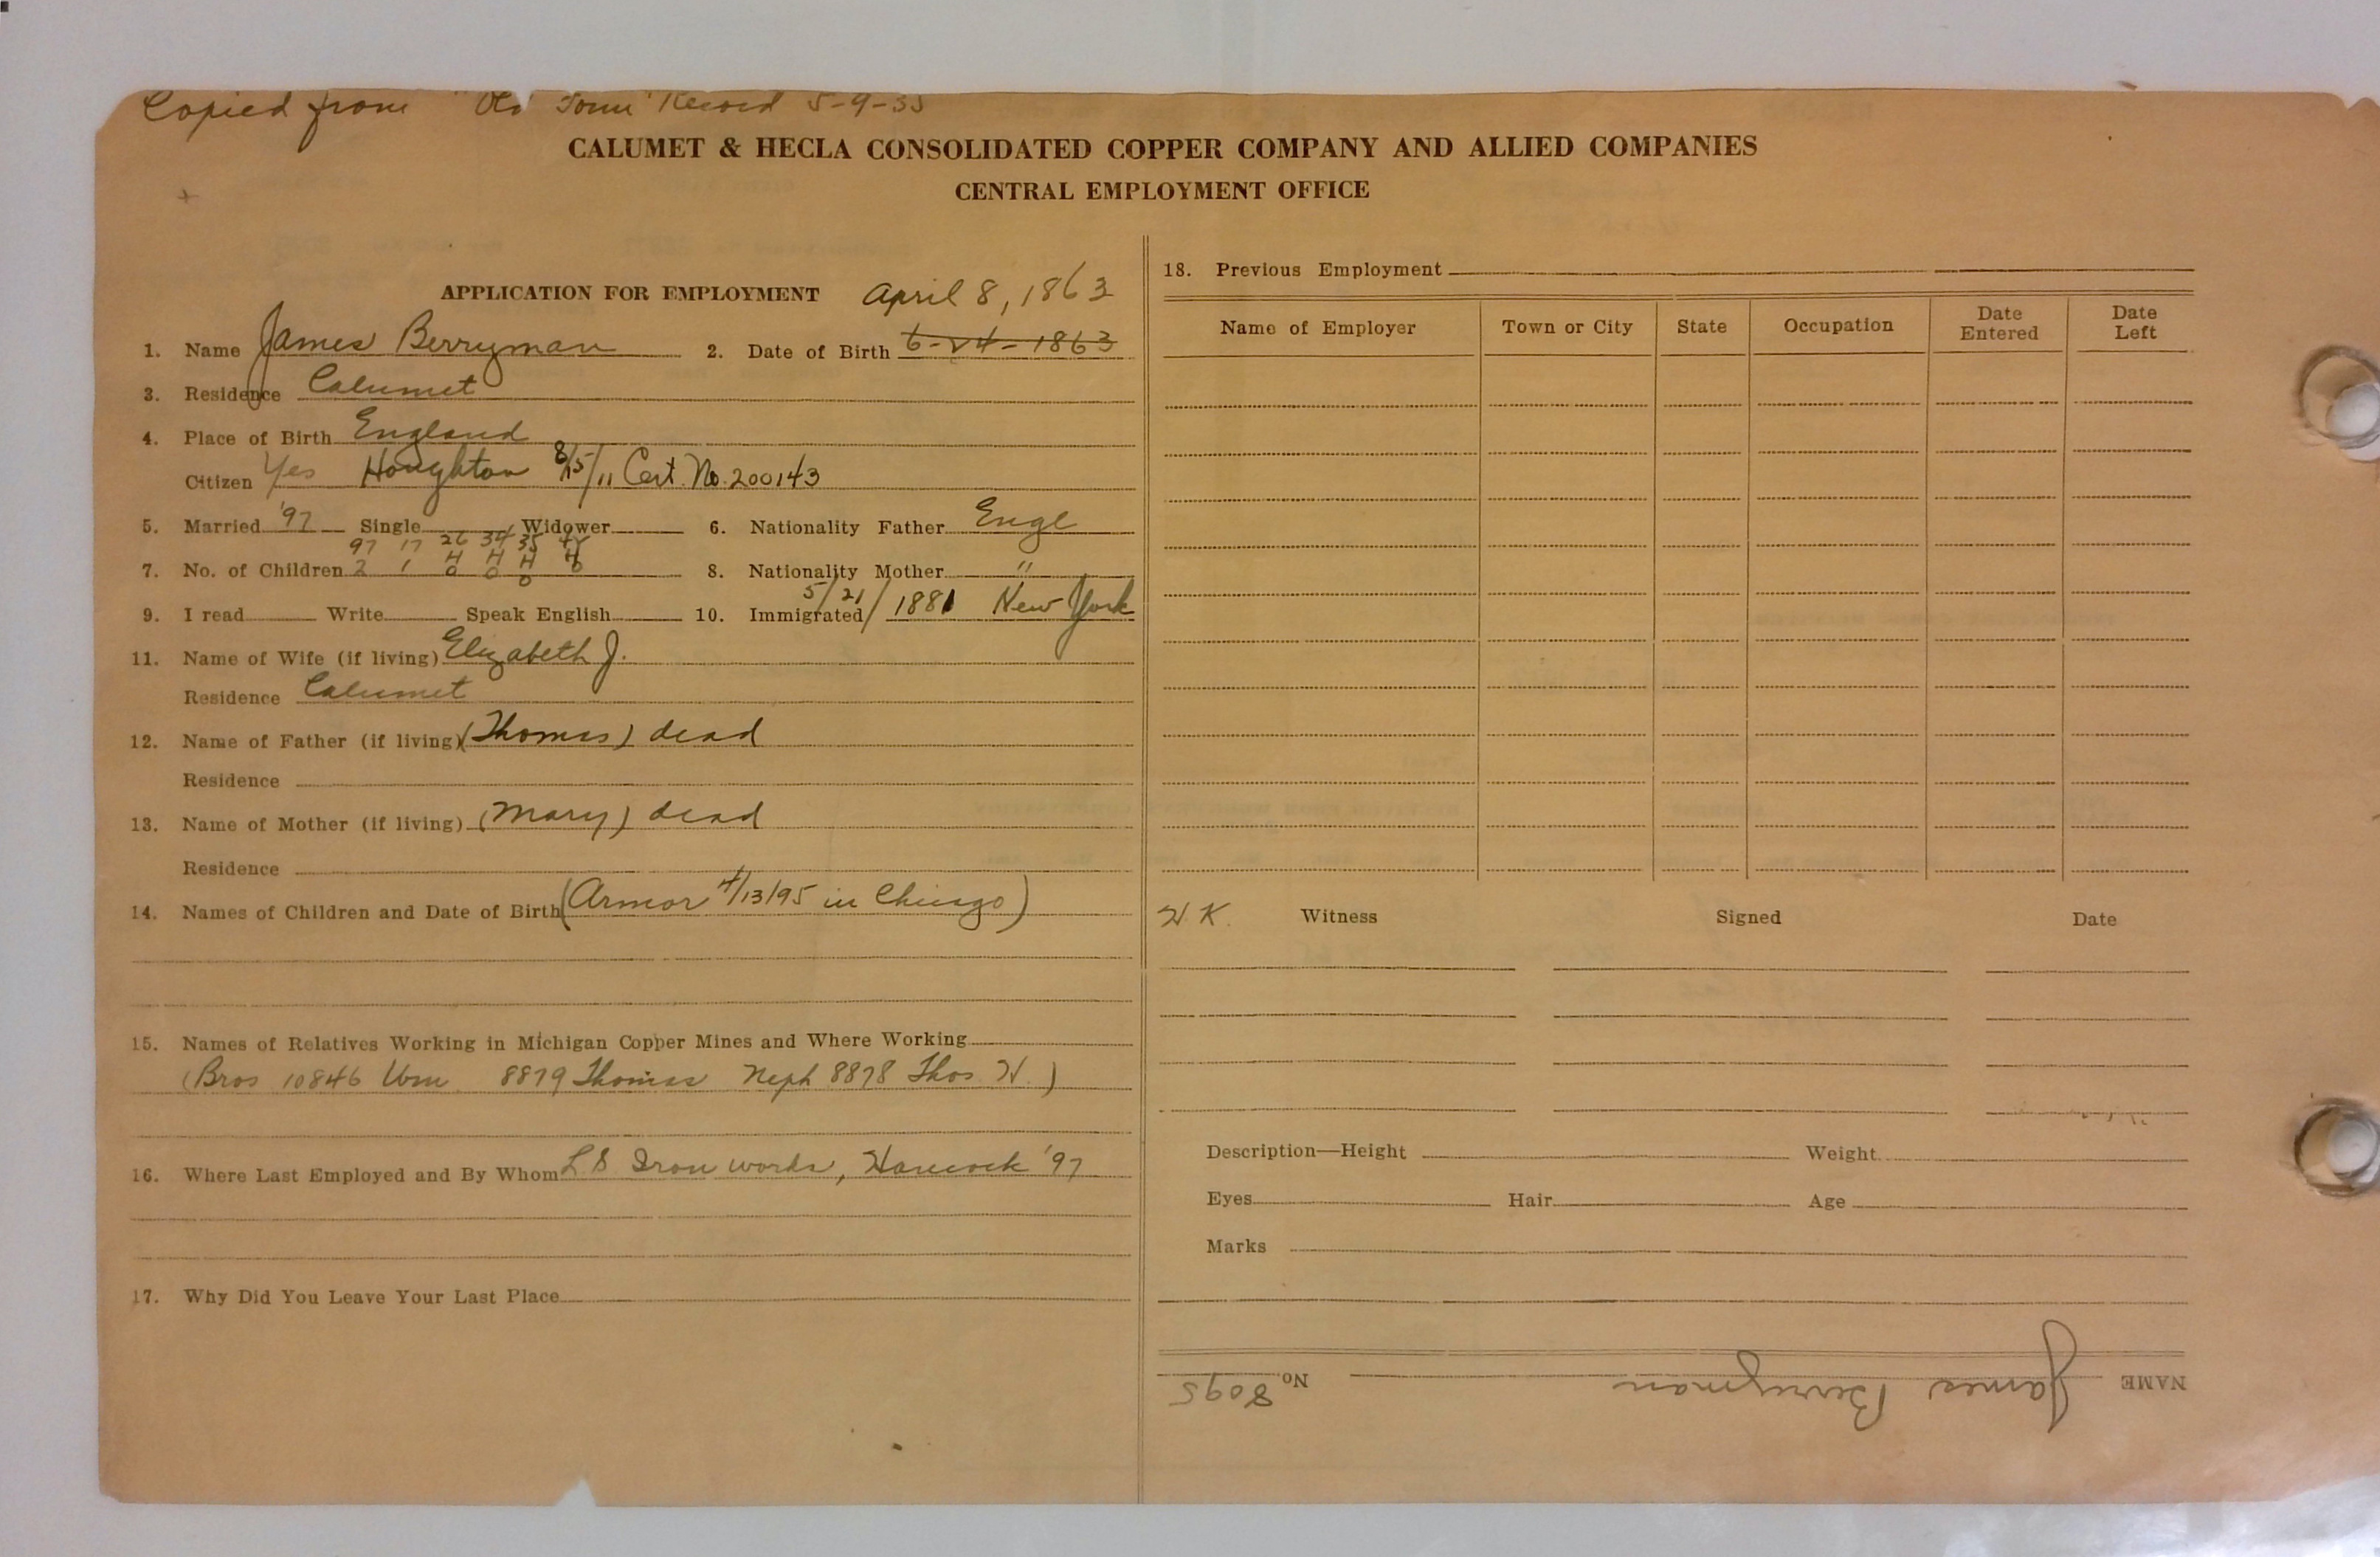 Copied from "Old Form" Record 5-9-35
CALUMET & HECLA CONSOLIDATED COPPER COMPANY AND ALLIED COMPANIES
CENTRAL EMPLOYMENT OFFICE
APPLICATION FOR EMPLOYMENT April 8, 1863
1. Name James Berryman 2. Date of Birth 6-24-1863
3. Residence Calumet
4. Place of Birth England
Citizen Yes Houghton 8/15/11 Cert. No. 200143
5. Married '97 Single Widower 6. Nationality Father Engl
97 17 26 34 35
7. No. of Children 2 1 0 0 0 0 8. Nationality Mother "
9. I read Write Speak English 10. Immigrated 5/21/1881 New York
11. Name of Wife (if living) Elizabeth J.
Residence Calumet
12. Name of Father (if living) (Thomas) dead
Residence
13. Name of Mother (if living) (Mary) dead
Residence
14. Names of Children and Date of Birth (Armor 4/13/95 in Chicago)
15. Names of Relatives Working in Michigan Copper Mines and Where Working
(Bros 10846 Wm 8879 Thomas Neph 8878 Thos. H.)
16. Where Last Employed and By Whom L.S Iron works, Hancock '97
17. Why Did You Leave Your Last Place
18. Previous Employment
Name of Employer Town or City State Occupation Date Entered Date Left
H.K. Witness Signed Date
Description—Height Weight
Eyes Hair Age
Marks
NAME James Berryman No 8095